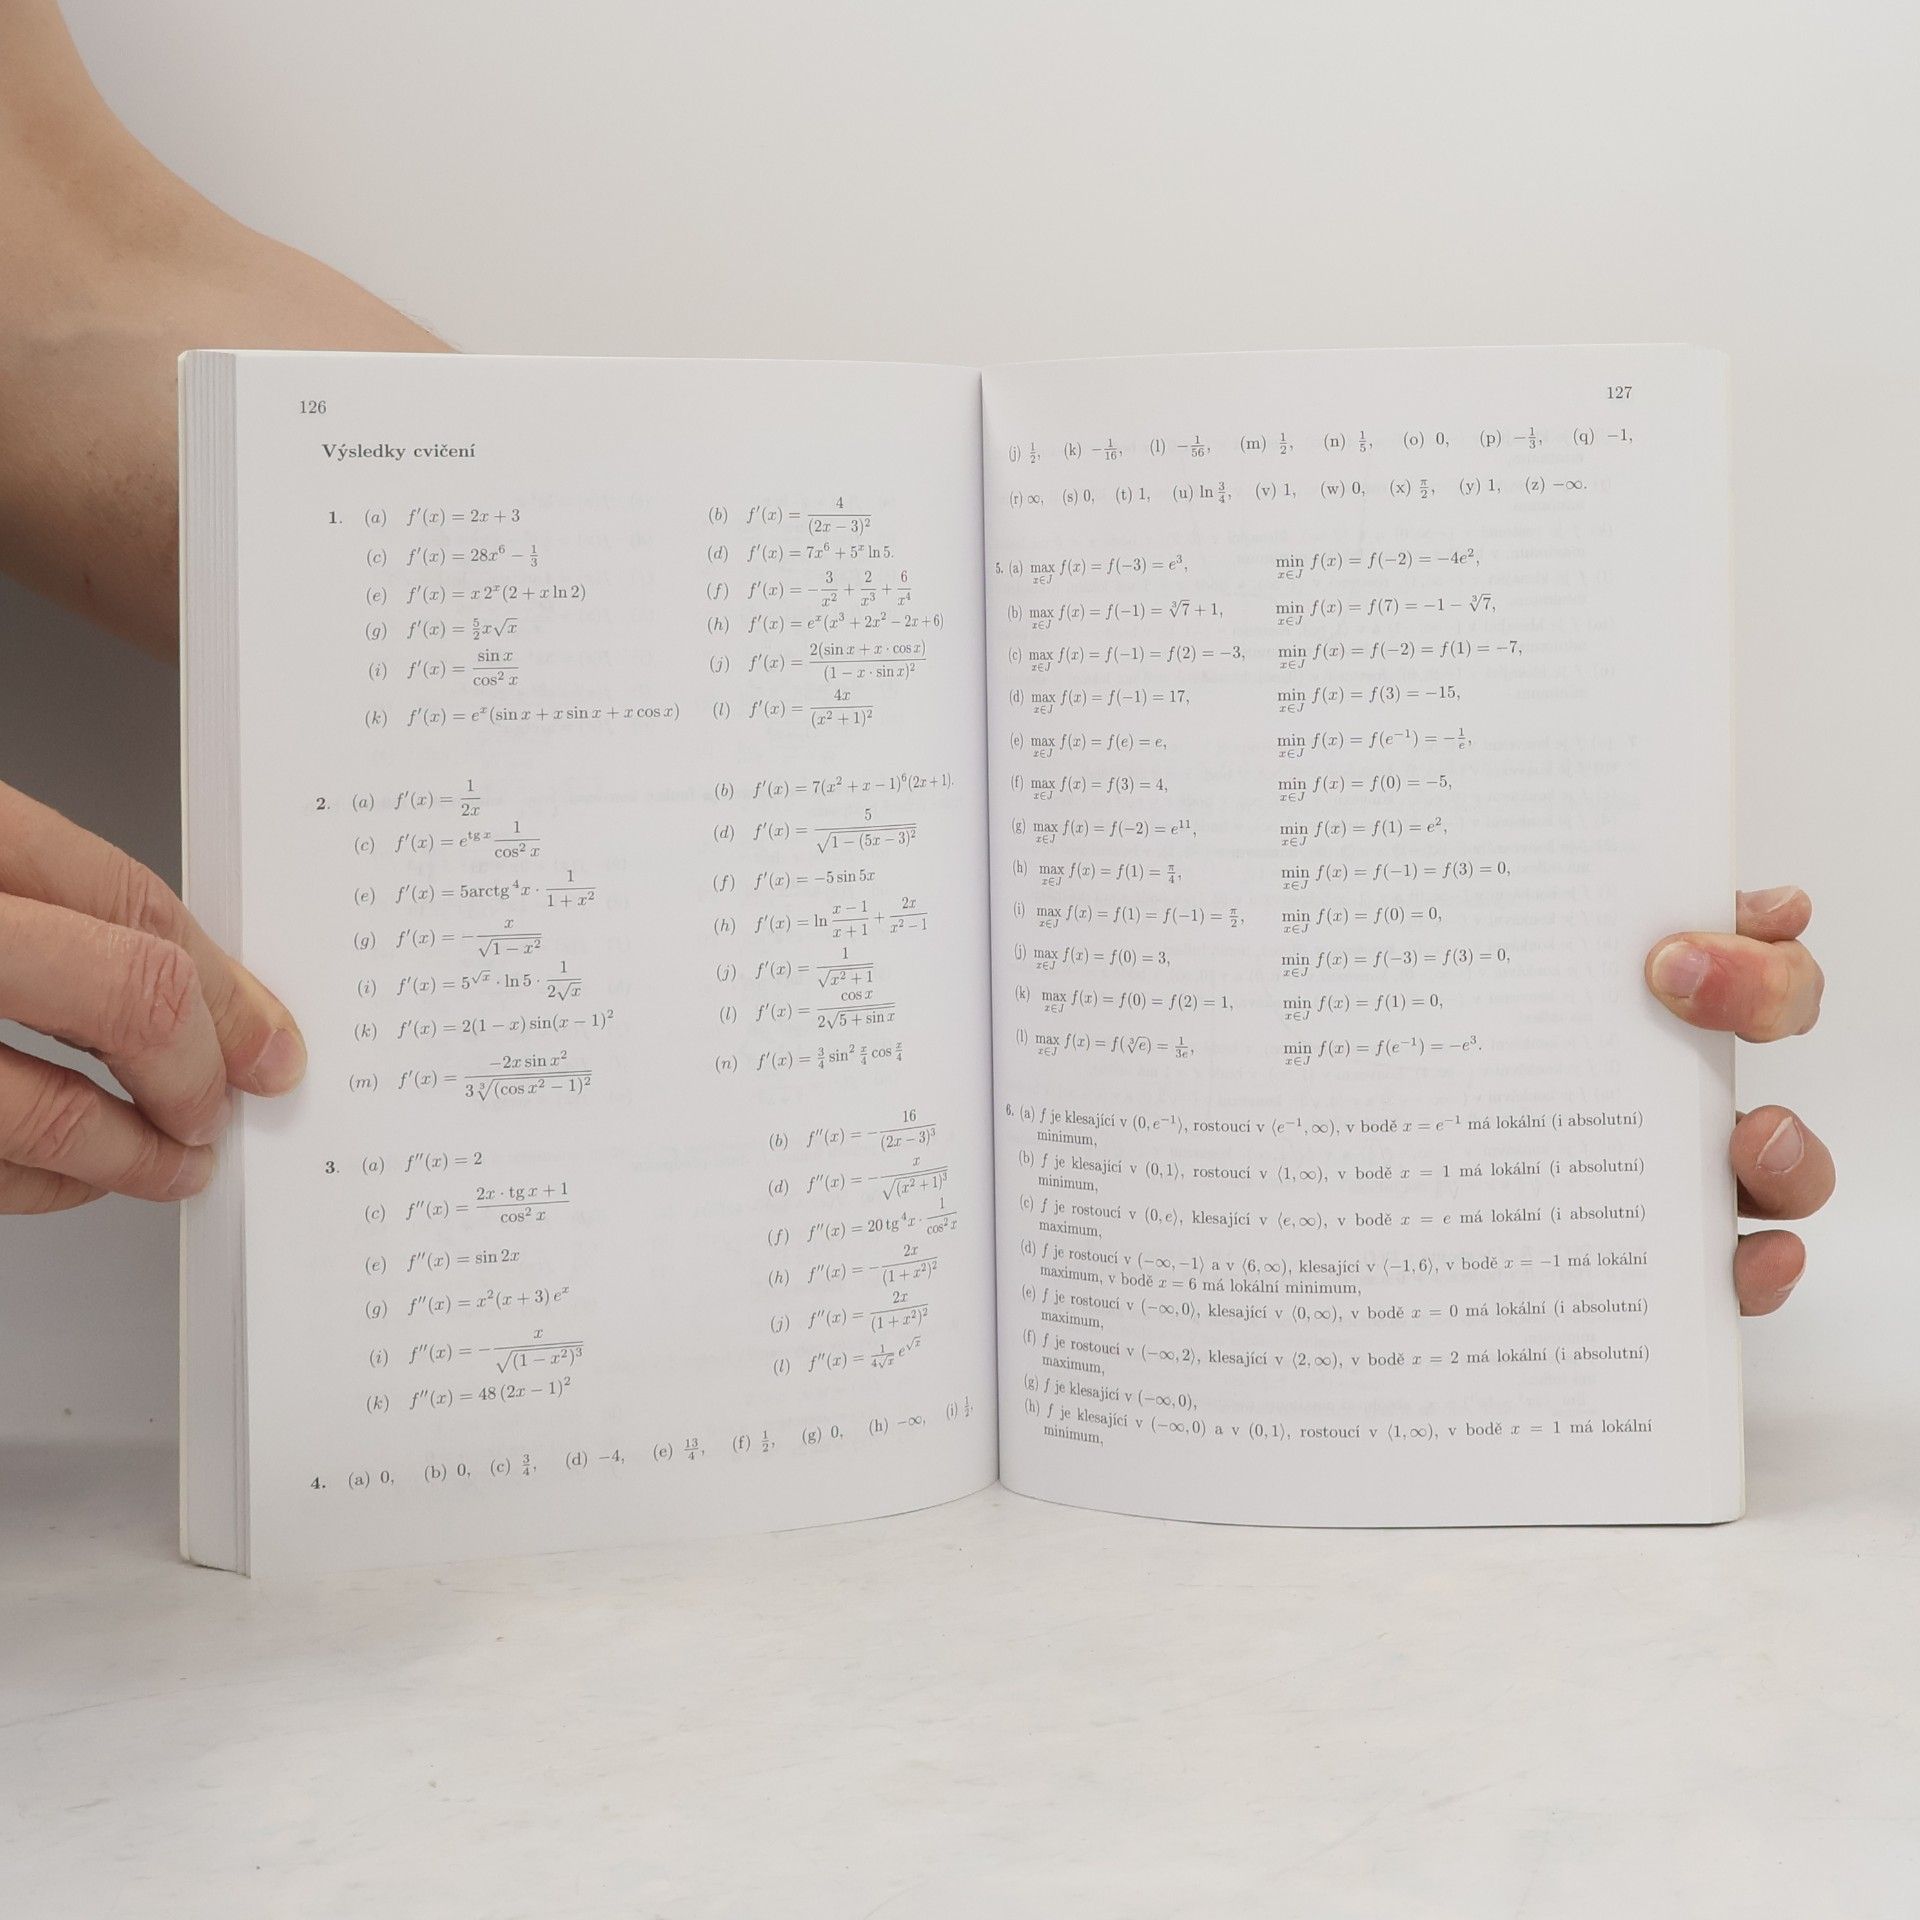 126
Výsledky cvičení
1. (a) f′(x) = 2x + 3 (b) f′(x) = 4/(2x − 3)²
(c) f′(x) = 28x⁶ − 1/3 (d) f′(x) = 7x⁶ + 5ˣ ln 5.
(e) f′(x) = x 2ˣ(2 + x ln 2) (f) f′(x) = −3/x² + 2/x³ + 6/x⁴
(g) f′(x) = 5/2 x√x (h) f′(x) = eˣ(x³ + 2x² − 2x + 6)
(i) f′(x) = sin x/cos² x (j) f′(x) = 2(sin x + x · cos x)/(1 − x · sin x)²
(k) f′(x) = eˣ(sin x + x sin x + x cos x) (l) f′(x) = 4x/(x² + 1)²
2. (a) f′(x) = 1/2x (b) f′(x) = 7(x² + x − 1)⁶(2x + 1).
(c) f′(x) = e^(tg x) 1/cos² x (d) f′(x) = 5/√(1 − (5x − 3)²)
(e) f′(x) = 5arctg⁴x · 1/(1 + x²) (f) f′(x) = −5 sin 5x
(g) f′(x) = −x/√(1 − x²) (h) f′(x) = ln (x − 1)/(x + 1) + 2x/(x² − 1)
(i) f′(x) = 5^(√x) · ln 5 · 1/(2√x) (j) f′(x) = 1/√(x² + 1)
(k) f′(x) = 2(1 − x) sin(x − 1)² (l) f′(x) = cos x/(2√(5 + sin x))
(m) f′(x) = −2x sin x²/(3∛((cos x² − 1)²)) (n) f′(x) = 3/4 sin² x/4 cos x/4
3. (a) f″(x) = 2 (b) f″(x) = −16/(2x − 3)³
(c) f″(x) = (2x · tg x + 1)/cos² x (d) f″(x) = −x/√((x² + 1)³)
(e) f″(x) = sin 2x (f) f″(x) = 20 tg⁴x · 1/cos² x
(g) f″(x) = x²(x + 3) eˣ (h) f″(x) = −2x/(1 + x²)²
(i) f″(x) = −x/√((1 − x²)³) (j) f″(x) = 2x/(1 + x²)²
(k) f″(x) = 48 (2x − 1)² (l) f″(x) = 1/(4√x) e^(√x)
4. (a) 0, (b) 0, (c) 3/4, (d) −4, (e) 13/4, (f) 1/2, (g) 0, (h) −∞, (i) 1/2,
127
(j) 1/2, (k) −1/16, (l) −1/56, (m) 1/2, (n) 1/5, (o) 0, (p) −1/3, (q) −1,
(r) ∞, (s) 0, (t) 1, (u) ln 3/4, (v) 1, (w) 0, (x) π/2, (y) 1, (z) −∞.
5. (a) max x∈J f(x) = f(−3) = e³, min x∈J f(x) = f(−2) = −4e²,
(b) max x∈J f(x) = f(−1) = ∛7 + 1, min x∈J f(x) = f(7) = −1 − ∛7,
(c) max x∈J f(x) = f(−1) = f(2) = −3, min x∈J f(x) = f(−2) = f(1) = −7,
(d) max x∈J f(x) = f(−1) = 17, min x∈J f(x) = f(3) = −15,
(e) max x∈J f(x) = f(e) = e, min x∈J f(x) = f(e⁻¹) = −1/e,
(f) max x∈J f(x) = f(3) = 4, min x∈J f(x) = f(0) = −5,
(g) max x∈J f(x) = f(−2) = e¹¹, min x∈J f(x) = f(1) = e²,
(h) max x∈J f(x) = f(1) = π/4, min x∈J f(x) = f(−1) = f(3) = 0,
(i) max x∈J f(x) = f(1) = f(−1) = π/2, min x∈J f(x) = f(0) = 0,
(j) max x∈J f(x) = f(0) = 3, min x∈J f(x) = f(−3) = f(3) = 0,
(k) max x∈J f(x) = f(0) = f(2) = 1, min x∈J f(x) = f(1) = 0,
(l) max x∈J f(x) = f(∛e) = 1/3e, min x∈J f(x) = f(e⁻¹) = −e³.
6. (a) f je klesající v (0, e⁻¹⟩, rostoucí v ⟨e⁻¹, ∞), v bodě x = e⁻¹ má lokální (i absolutní)
minimum,
(b) f je klesající v (0, 1⟩, rostoucí v ⟨1, ∞), v bodě x = 1 má lokální (i absolutní)
minimum,
(c) f je rostoucí v (0, e⟩, klesající v ⟨e, ∞), v bodě x = e má lokální (i absolutní)
maximum,
(d) f je rostoucí v (−∞, −1⟩ a v ⟨6, ∞), klesající v ⟨−1, 6⟩, v bodě x = −1 má lokální
maximum, v bodě x = 6 má lokální minimum,
(e) f je rostoucí v (−∞, 0⟩, klesající v ⟨0, ∞), v bodě x = 0 má lokální (i absolutní)
maximum,
(f) f je rostoucí v (−∞, 2⟩, klesající v ⟨2, ∞), v bodě x = 2 má lokální (i absolutní)
maximum,
(g) f je klesající v (−∞, 0),
(h) f je klesající v (−∞, 0) a v (0, 1⟩, rostoucí v ⟨1, ∞), v bodě x = 1 má lokální
minimum,